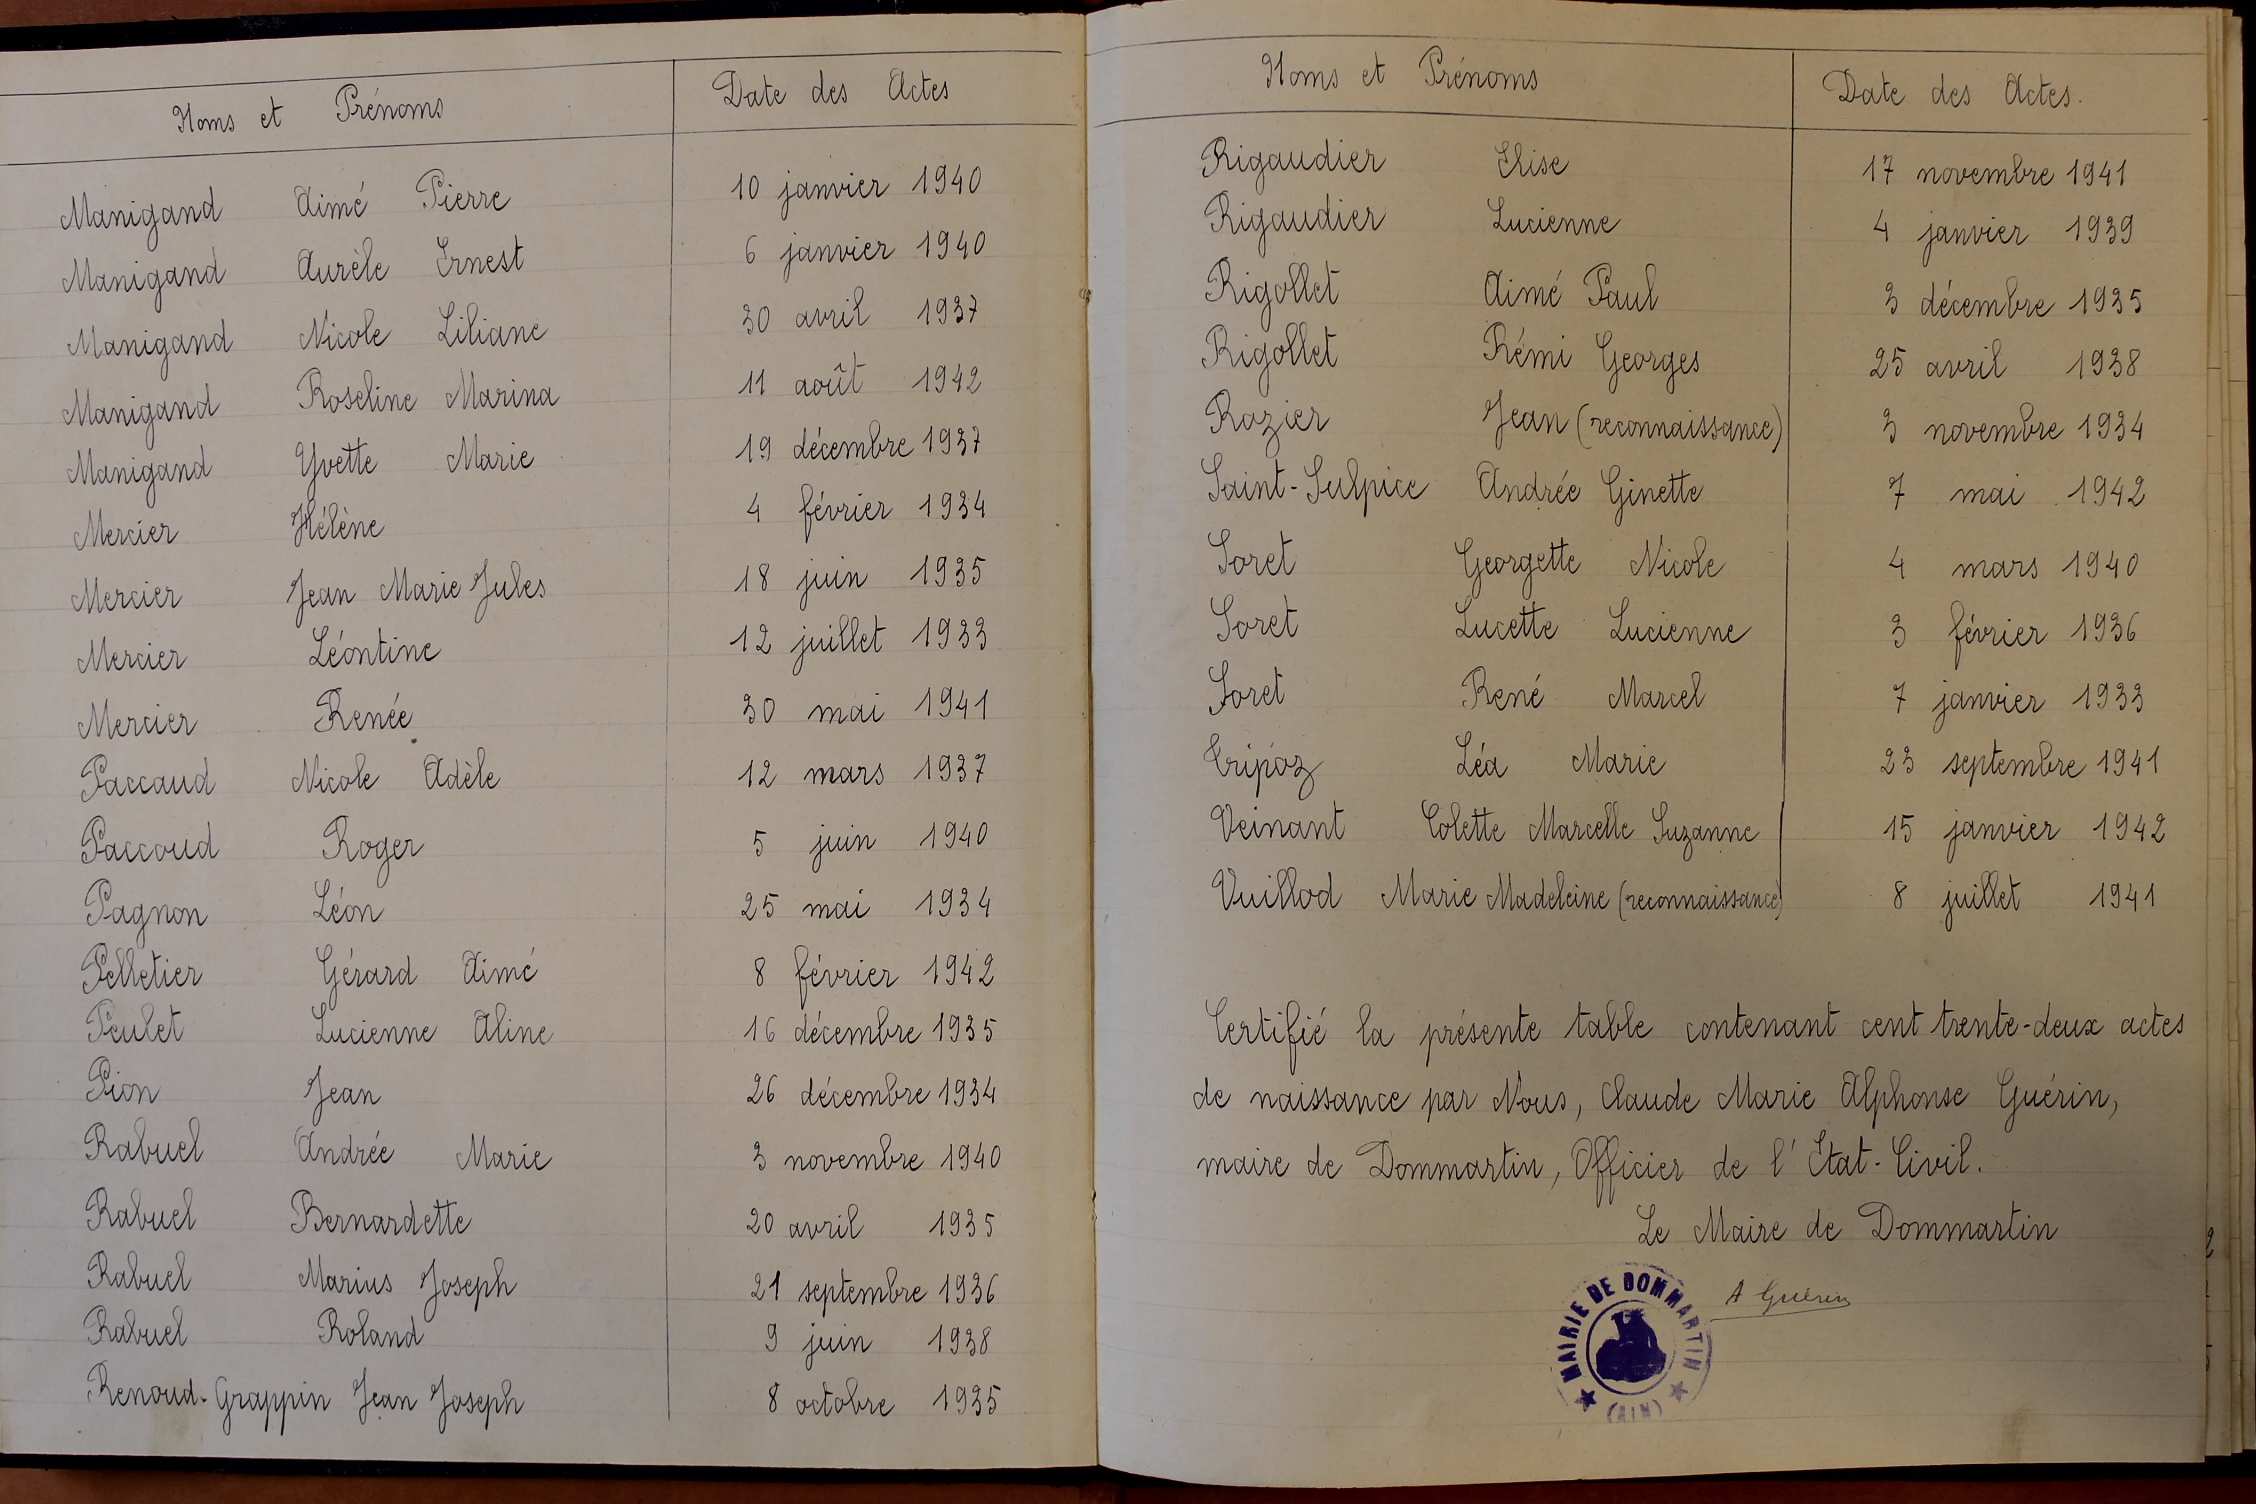 Noms et Prénoms Date des Actes
Manigand Aimé Pierre 10 janvier 1940
Manigand Aurèle Ernest 6 janvier 1940
Manigand Nicole Liliane 30 avril 1937
Manigand Roseline Marina 11 août 1942
Manigand Yvette Marie 19 décembre 1937
Mercier Hélène 4 février 1934
Mercier Jean Marie Jules 18 juin 1935
Mercier Léontine 12 juillet 1933
Mercier Renée 30 mai 1941
Paccaud Nicole Adèle 12 mars 1937
Paccoud Roger 5 juin 1940
Pagnon Léon 25 mai 1934
Pelletier Gérard Aimé 8 février 1942
Peulet Lucienne Aline 16 décembre 1935
Pion Jean 26 décembre 1934
Rabuel Andrée Marie 3 novembre 1940
Rabuel Bernardette 20 avril 1935
Rabuel Marius Joseph 21 septembre 1936
Rabuel Roland 9 juin 1938
Renoud-Grappin Jean Joseph 8 octobre 1935
Noms et Prénoms Date des Actes.
Rigaudier Elise 17 novembre 1941
Rigaudier Lucienne 4 janvier 1939
Rigollet Aimé Paul 3 décembre 1935
Rigollet Rémi Georges 25 avril 1938
Rozier Jean (reconnaissance) 3 novembre 1934
Saint-Sulpice Andrée Ginette 7 mai 1942
Soret Georgette Nicole 4 mars 1940
Soret Lucette Lucienne 3 février 1936
Soret René Marcel 7 janvier 1933
Tripoz Léa Marie 23 septembre 1941
Veinant Colette Marcelle Suzanne 15 janvier 1942
Vuillod Marie Madeleine (reconnaissance) 8 juillet 1941
Certifié la présente table contenant cent trente-deux actes
de naissance par Nous, Claude Marie Alphonse Guérin,
maire de Dommartin, Officier de l'Etat-Civil.
Le Maire de Dommartin
A Guérin
MAIRIE DE DOMMARTIN
(AIN)